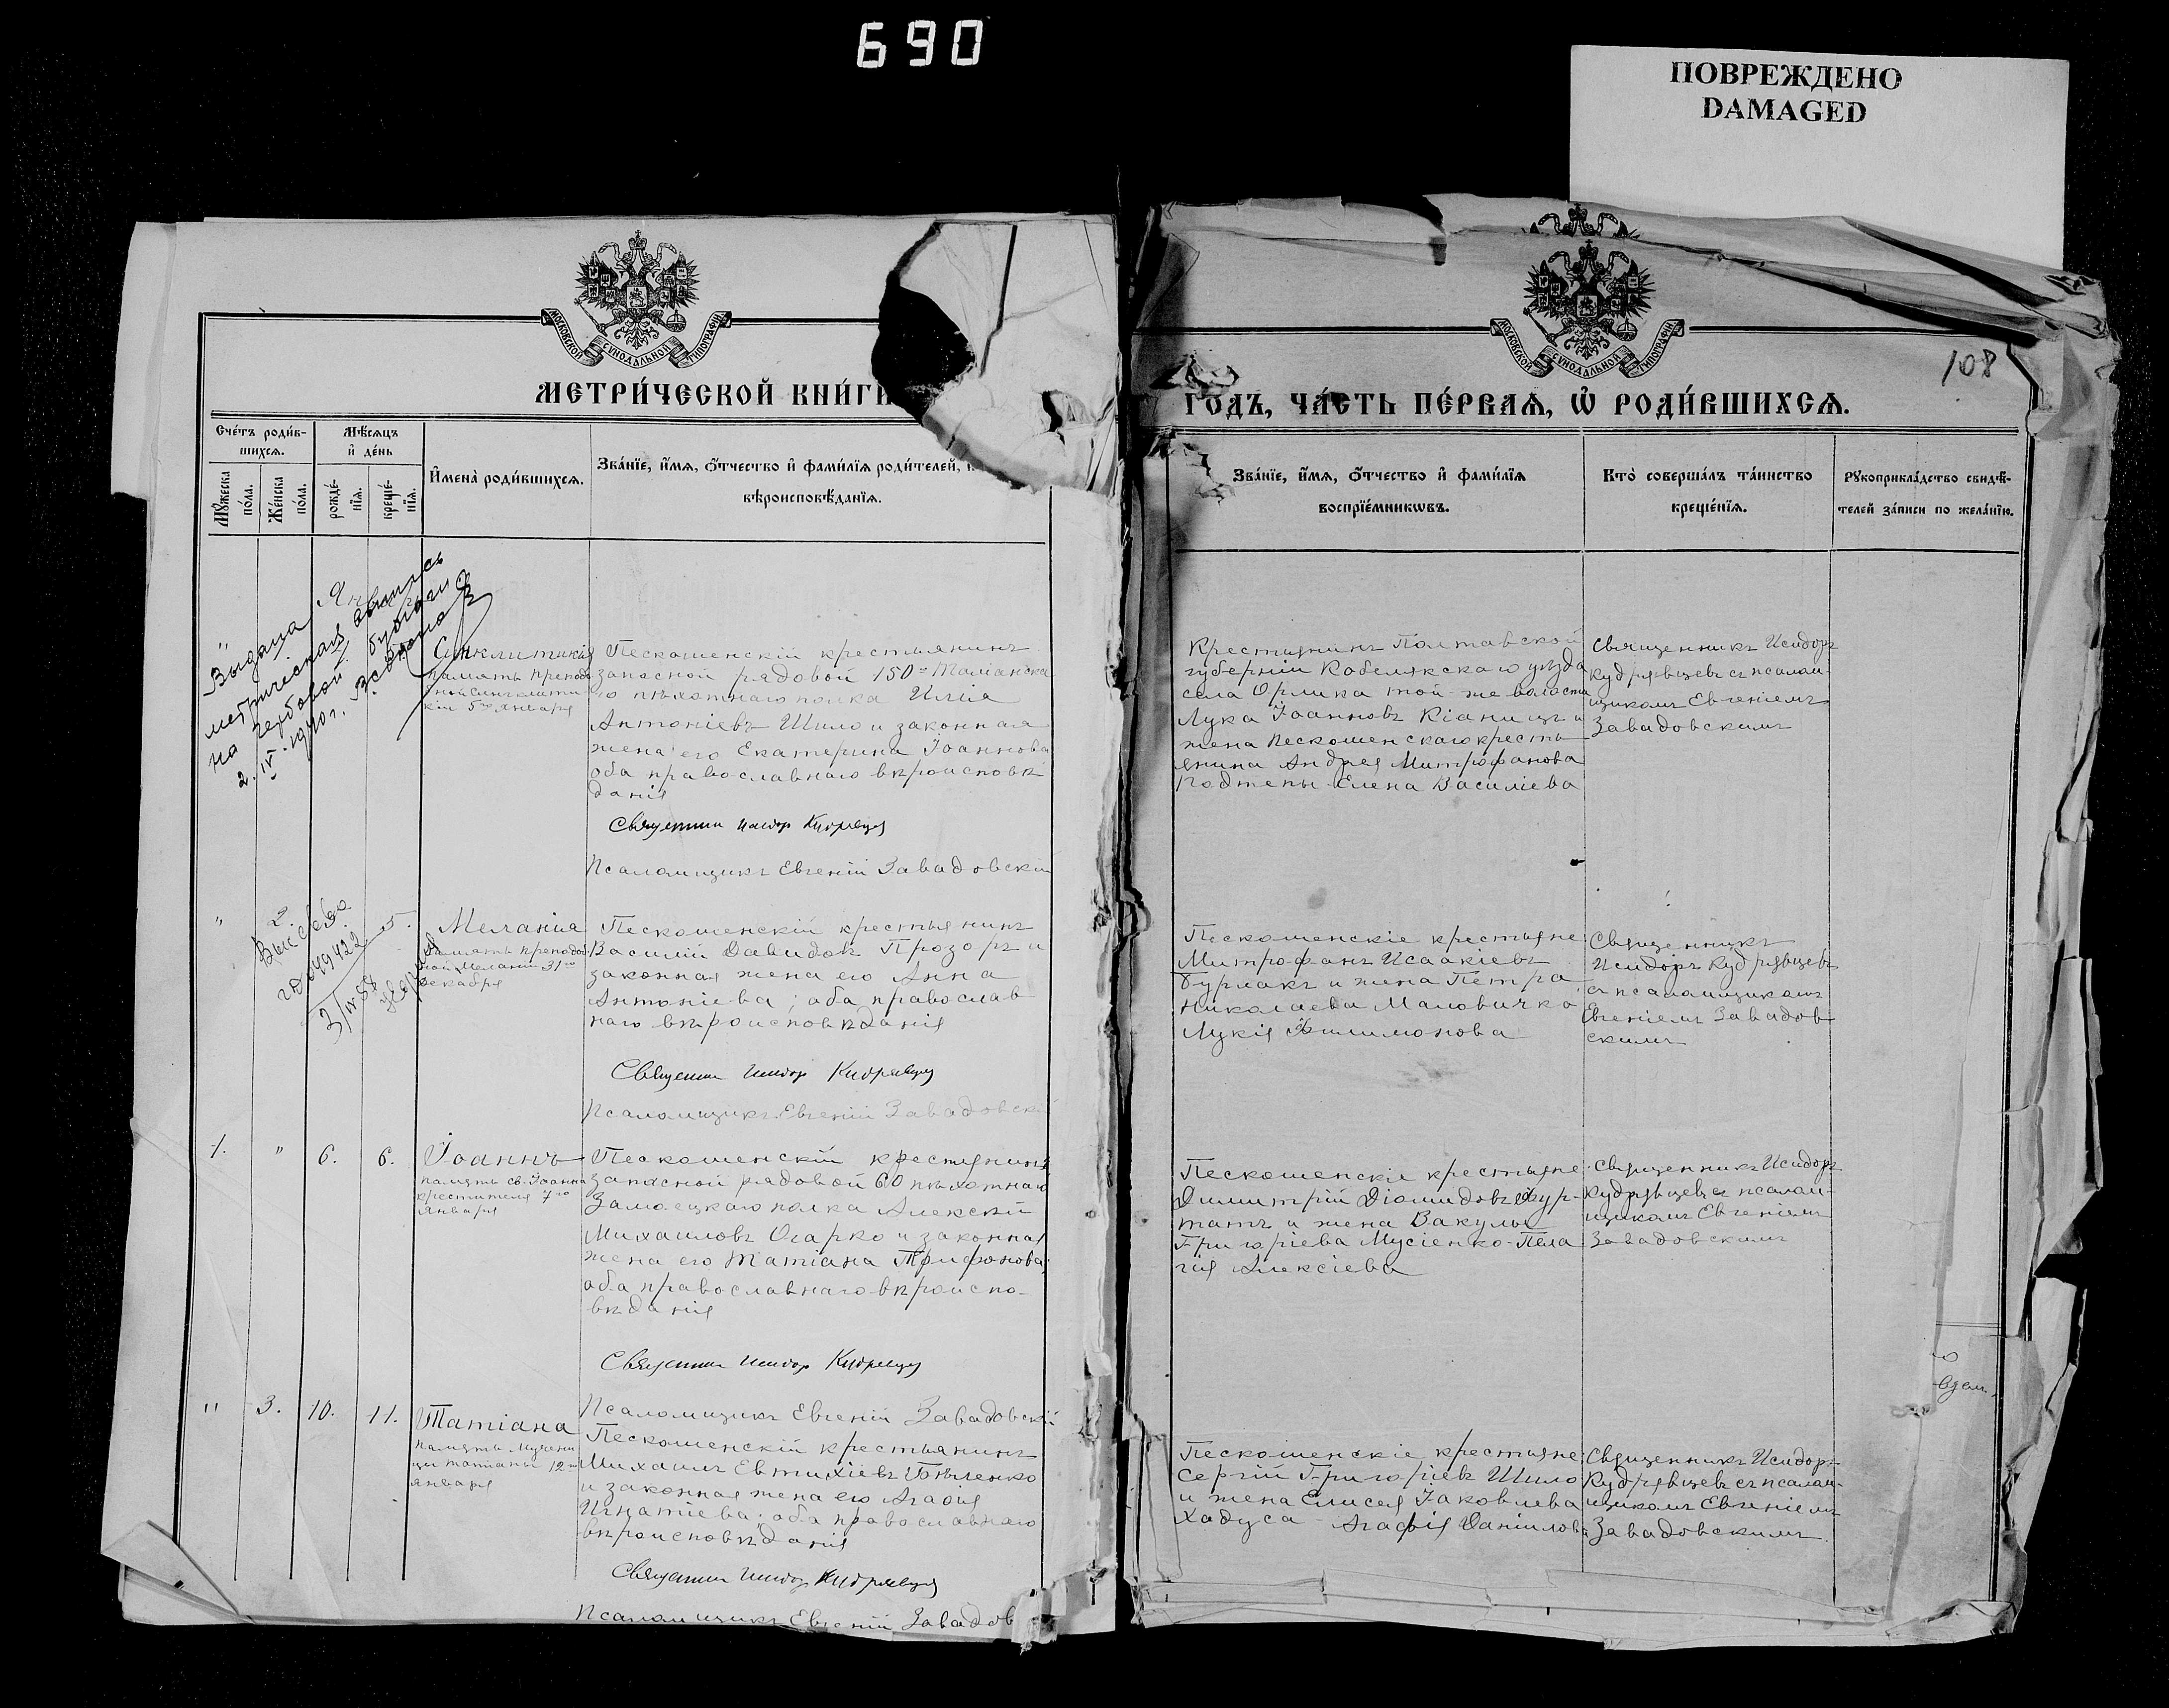 690
ПОВРЕЖДЕНО
DAMAGED
МОСКОВСКОЙ СѴНОДАЛЬНОЙ ТИПОГРАФІИ
МЕТРИ́ЧЕСКОЙ КНИ́ГИ
Сче́тъ роди́в-
шихсѧ.
Мѣ́сѧцъ
и҆ де́нь
Мꙋ́жеска
по́ла.
Же́нска
по́ла.
рожде́-
нїѧ.
креще́-
нїѧ.
И҆мена̀ роди́вшихсѧ.
Зва́нїе, и҆́мѧ, ѻ҆́тчество и҆ фами́лїѧ роди́телей,
вѣроисповѣ́данїѧ.
Выдана
метрическая выпись
на гербовой бумаге
2.IV.1910 г.
Синклитикія
память препод
кіи 5го января
Пескошенскій крестьянинъ
запасной рядовой 150го Таманска
го пѣхотнаго полка Илія
Антоніевъ Шило и законная
жена его Екатерина Іоаннова
оба православнаго вѣроисповѣ
данія
Священник Исидор Кудрявцев
Псаломщикъ Евгеній Завадовскій
" 2. 5.
Меланіа
память препод
ной Меланіи 31го
декабря
Пескошенскій крестьянинъ
Василій Давидовъ Прозоръ и
законная жена его Анна
Антоніева; оба православ
наго вѣроисповѣданія
Священник Исидор Кудрявцев
Псаломщикъ Евгеній Завадовскій
1. " 6. 6.
Іоаннъ
память св. Іоанна
крестителя 7го
января
Пескошенскій крестьянинъ
запасной рядовой 60 пѣхотнаго
Замосцкаго полка Алексій
Михаиловъ Огарко и законная
жена его Татіана Трифонова;
оба православнаго вѣроиспо-
вѣданія
Священник Исидор Кудрявцев
Псаломщикъ Евгеній Завадовскій
" 3. 10. 11.
Татіана
память мучени
цы Татіаны 12го
января
Пескошенскій крестьянинъ
Михаилъ Евтихіевъ Бѣленко
и законная жена его Агафія
Игнатіева; оба православнаго
вѣроисповѣданія
Священник Исидор Кудрявцев
Псаломщикъ Евгеній Завадов
МОСКОВСКОЙ СѴНОДАЛЬНОЙ ТИПОГРАФІИ
108
ГОДЪ, ЧА́СТЬ ПЕ́РВАѦ, Ѽ РОДИ́ВШИХСѦ.
Зва́нїе, и҆́мѧ, ѻ҆́тчество и҆ фами́лїѧ
воспрїе́мникѡвъ.
Кто̀ соверша́лъ та́инство
креще́нїѧ.
Рꙋкоприкла́дство свидѣ́-
телей за́писи по жела́нїю.
Крестьянинъ Полтавской
губерніи Кобелякскаго уѣзда
села Орлика той-же волости
Лука Іоанновъ Кіаница и
жена Пескошенскаго кресть
янина Андрея Митрофанова
Елена Василіева
Священникъ Исидоръ
Кудрявцевъ съ псалом-
щикомъ Евгеніемъ
Завадовскимъ
Пескошенскіе крестьяне
Митрофанъ Исаакіевъ
Бурлакъ и жена Петра
Николаева Маловичко
Лукія Филимонова
Священникъ
Исидоръ Кудрявцевъ
съ псаломщикомъ
Евгеніемъ Завадов-
скимъ
Пескошенскіе крестьяне
Димитрій Діомидовъ Кур-
татъ и жена Вакулы
Григоріева Мусіенко-Пела
гія Алексіева
Священникъ Исидоръ
Кудрявцевъ съ псалом-
щикомъ Евгеніемъ
Завадовскимъ
Пескошенскіе крестьяне
Сергій Григоріевъ Шило
и жена Елисея Іаковлева
Хадуса - Агафія Даніилова
Священникъ Исидоръ
Кудрявцевъ съ псалом-
щикомъ Евгеніемъ
Завадовскимъ